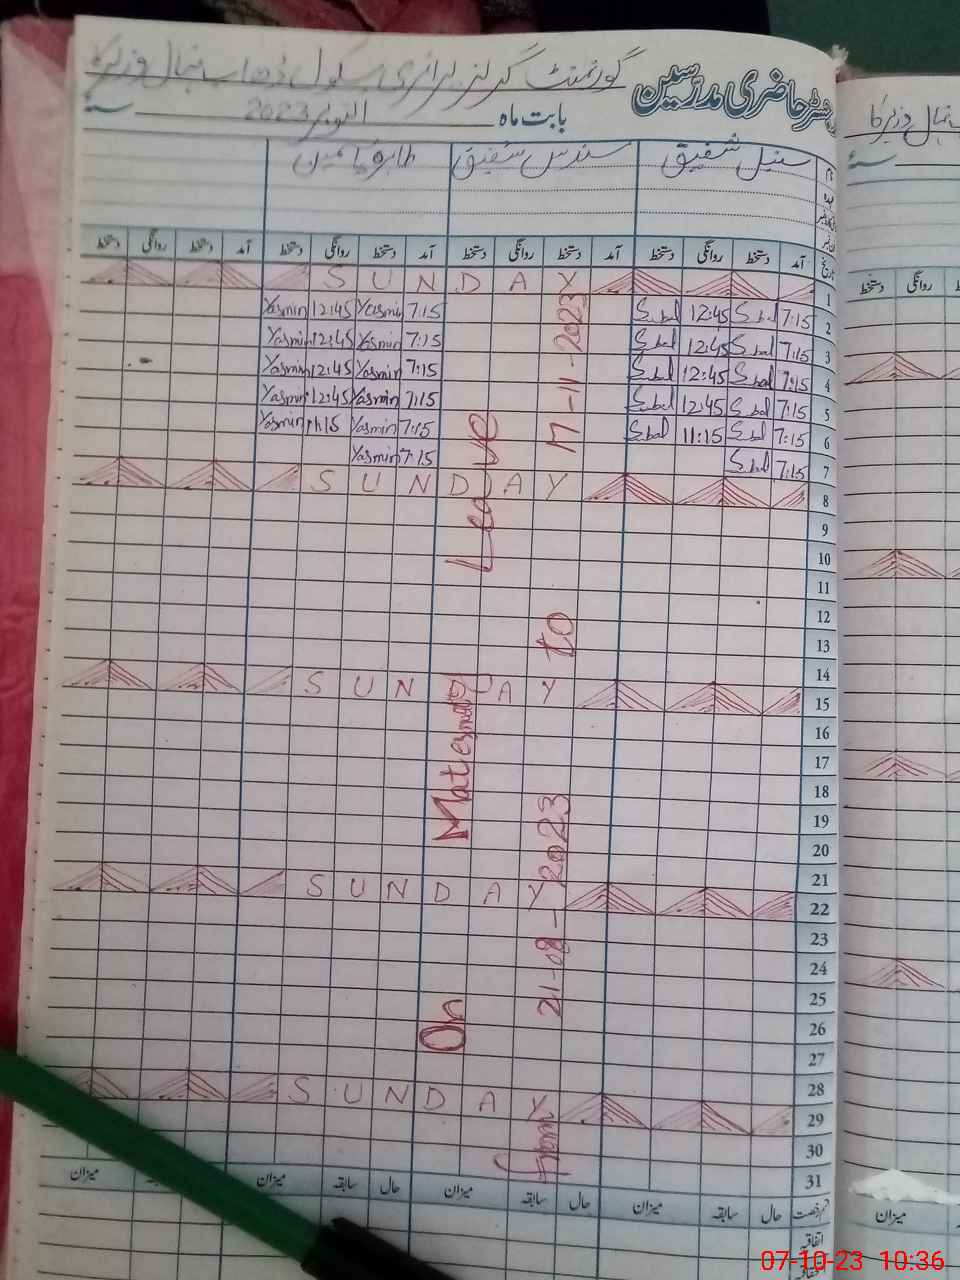 گورنمنٹ گرلز پرائمری سکول ڈھاب نہال وزیرکا
رجسٹر حاضری مدرسین
بابت ماہ اکتوبر 2023 سنہ
نام سنبل شفیق سندس شفیق طاہرہ یاسمین
عہدہ
تاریخ آمد دستخط روانگی دستخط آمد دستخط روانگی دستخط آمد دستخط روانگی دستخط آمد دستخط روانگی دستخط
1 SUNDAY
2 7:15 S.bal 12:45 S.bal 7:15 Yasmin 12:45 Yasmin
3 7:15 S.bal 12:45 S.bal 7:15 Yasmin 12:45 Yasmin
4 7:15 S.bal 12:45 S.bal 7:15 Yasmin 12:45 Yasmin
5 7:15 S.bal 12:45 S.bal 7:15 Yasmin 12:45 Yasmin
6 7:15 S.bal 11:15 S.bal 7:15 Yasmin 11:15 Yasmin
7 7:15 S.bal 7:15 Yasmin
8 SUNDAY
9
10
11
12
13
14
15 SUNDAY
16
17
18
19
20
21
22 SUNDAY
23
24
25
26
27
28
29 SUNDAY
30
31
On Maternity Leave
from 21-08-2023 to 17-11-2023
قسم رخصت حال سابقہ میزان حال سابقہ میزان حال سابقہ میزان میزان
اتفاقیہ
نہال وزیرکا
سنہ
دستخط روانگی
میزان
07-10-23 10:36